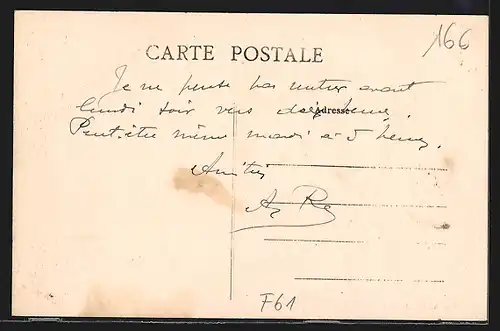 166
CARTE POSTALE
Je ne pense pas rentrer avant
lundi soir vers heures.
Adresse
Peut-être même mardi à 5 heures.
Amitiés
F61